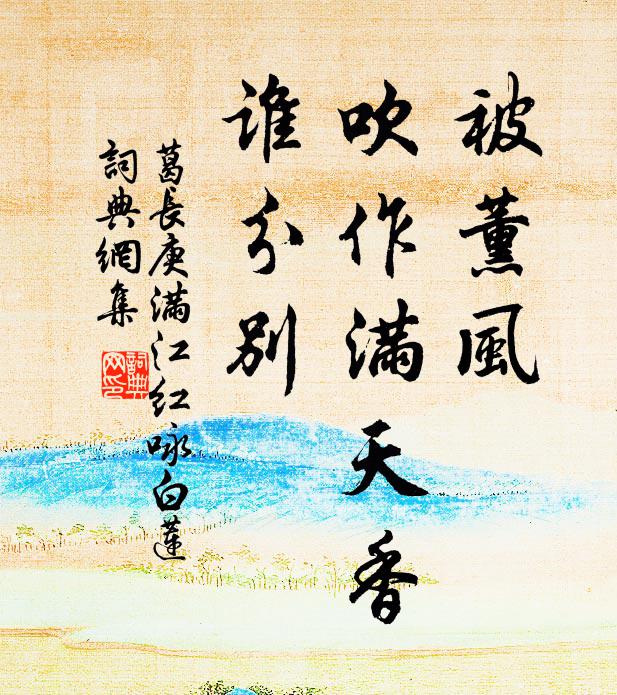 被薰風
吹作滿天香
誰分別
葛長庚滿江紅咏白蓮
詞典網集
詞典
网印